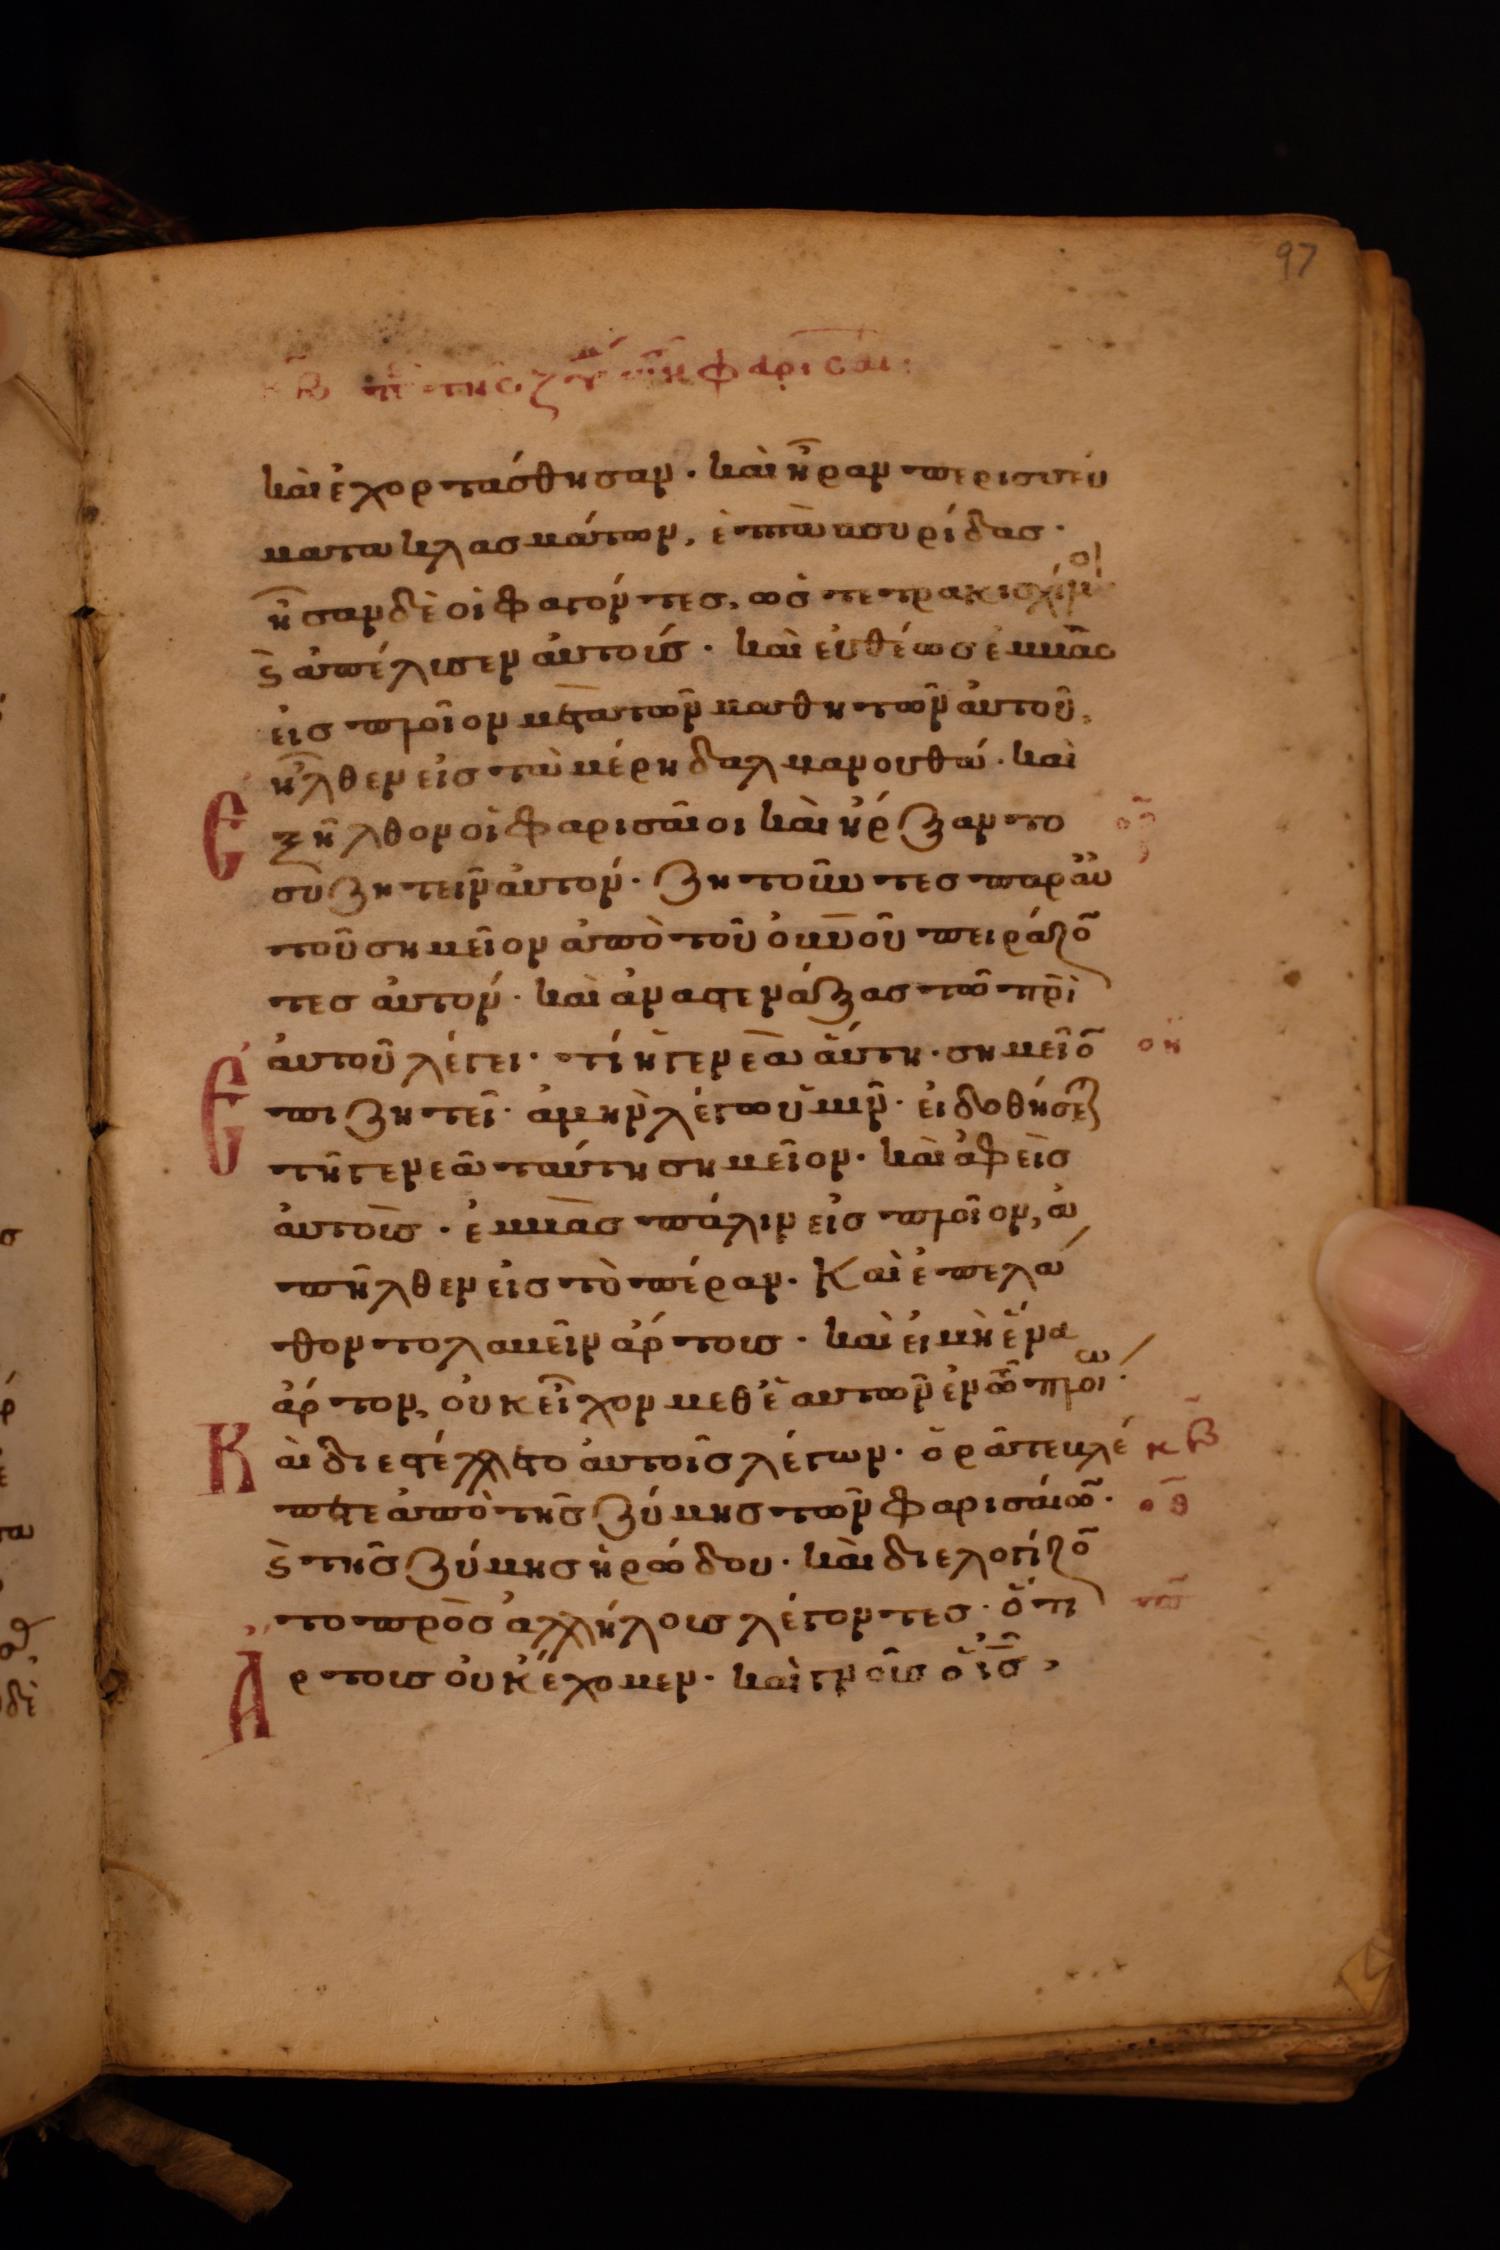 97
κβ πε της ζυμης των φαρισαι:
καὶ ἐχορτάσθησαν· καὶ ἦραν περισσεύ
ματα κλασμάτων, ἑπτὰ σπυρίδας·
ἦσαν δὲ οἱ φαγόντες, ὡς τετρακισχίλιοι
ϛ ἀπέλυσεν ἀυτούς· καὶ ἐυθέως ἐμβὰς
εἰς πλοῖον μετὰ τῶν μαθητῶν ἀυτοῦ,
ἦλθεν εἰς τὰ μέρη δαλμανουθά· καὶ
Ε ξῆλθον οἱ φαρισαῖοι καὶ ἤρξαντο
συζητεῖν ἀυτόν· ζητοῦντες παρ ἀυ
τοῦ σημεῖον ἀπὸ τοῦ ὀυνοῦ πειράζο̄
τες ἀυτόν· καὶ ἀναστενάξας τῶ πνι
ἀυτοῦ λέγει· τί ἡ γενεὰ ἅυτη· σημεῖο̄ οη
Ε πιζητεῖ· ἀμὴν λέγω ὑμῖν· εἰ δοθήσε
τῆ γενεᾶ ταύτη σημεῖον· καὶ ἀφεὶς
ἀυτοὺς· ἐμβὰς πάλιν εἰς πλοῖον, ἀ
πῆλθεν εἰς τὸ πέραν· Καὶ ἐπελά
θοντο λαβεῖν ἄρτους· καὶ εἰ μὴ ἕνα
ἄρτον, ὀυκ εἶχον μεθ ἑαυτῶν ἐν τῶ πλοίω·
Κ ὰι διεστέλλετο ἀυτοῖς λέγων· ὁρᾶτε βλέ κβ
πετε ἀπὸ τῆς ζύμης τῶν φαρισαίω̄· οθ
ϛ τῆς ζύμης ἡρώδου· καὶ διελογίζο̄
το πρὸς ἀλλήλους λέγοντες· ὅτι π
Ἄ ρτους ὀυκ ἔχομεν· καὶ γνοὺς ὁ ἰς,